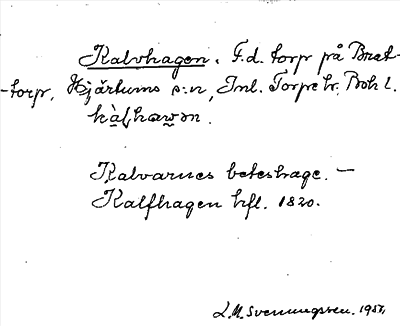 Kalvhagen. F.d. torp på Brat-
-torp, Hjärtums s:n, Inl. Torpe hr. Boh l.
Kalvarnes beteshage. —
Kalfhagen hfl. 1820.
L.M. Svenungsson. 195